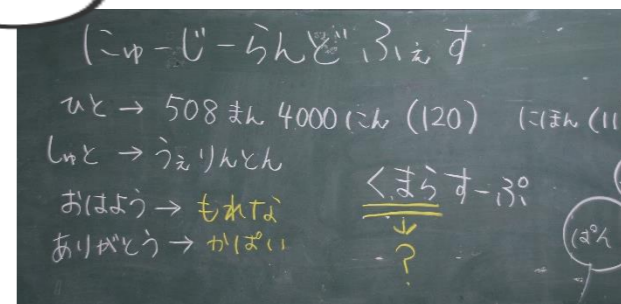 にゅーじーらんどふぇす
ひと → 508まん 4000にん (120) にほん (11
しゅと → うぇりんとん
おはよう → もれな
ありがとう → かぱい
くまらすーぷ
↓
?
ぱん